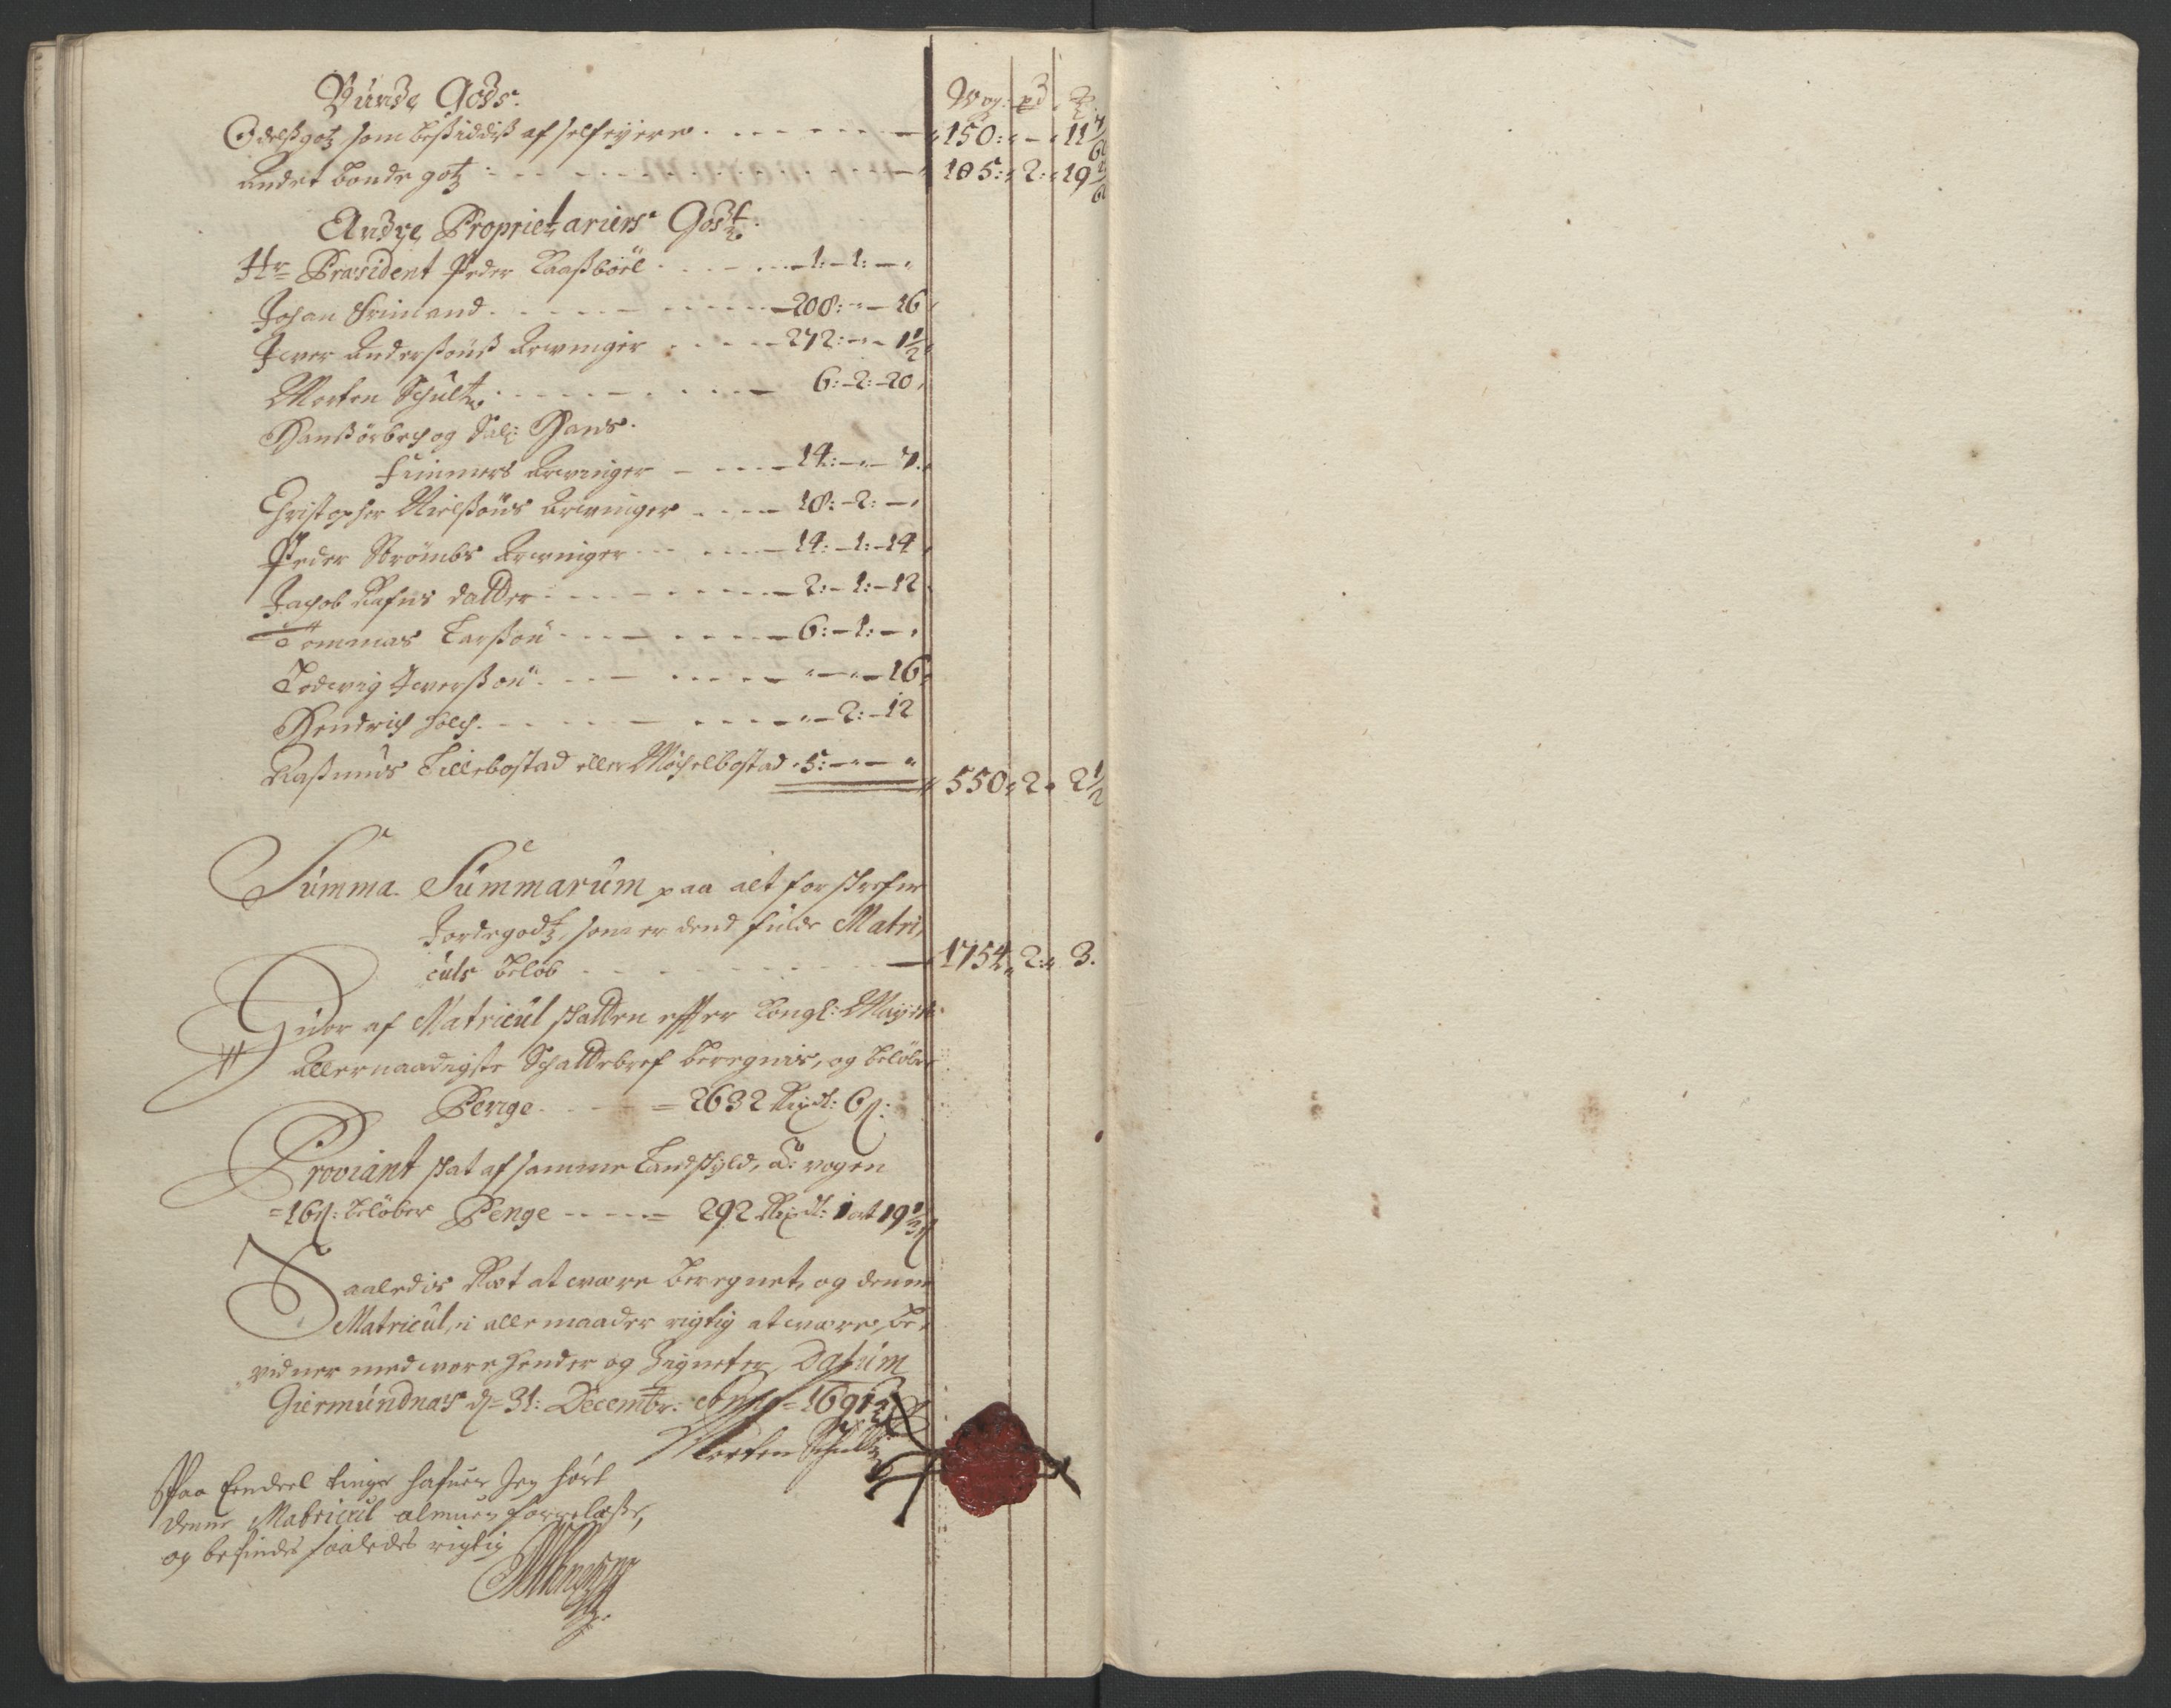 Bunde Gods.
Wog: pd ℔
Odelsgotz som besiddis af selfeyere 150: - 11 7/60
Andet bonde gotz 185: 2: 19
Andre Proprietariers Godtz
Hr Præsident Peder 1: 1: -
Johan Frimand 208: - 16
Iver Anderssøns Arvinger 272: - 1 1/2
Morten Schultz 6: 2: 20
og Sal: Hans
Finmers Arvinger 14: - 7
Christopher Nielssøns Arvinger 18: 2: -
Peder Strømbs Arvinger 14: 1: 14
Jachob datter 2: 1: 12
Tommas Larssøn 6: 1: -
Lodwig Iverssøn 16
Hendrich Holch 2: 12
Rasmus Lillebostad eller Mochelbostad 5: - -
550 2 2 1/2
Summa Summarum paa alt forschrefne
Jordegodtz, som er dend fulde Matri
culs beløb 1754 2 3.
Huor af Matricul skatten efter Kongl: Mayst:
Allernaadigste Schattebref beregnis, og beløber
Penge 2632 Rixdr: 6 β:
Proviant skat af samme Landskyld, a: vogen
16β: beløber Penge 292 Rixdr: 1 ort 19 1/2 β
Saaledis Ræt at være beregnet, og denne
Matricul, i alle maader rigtig at være, be-
vidner med vore Hender og Zigneter, Datum
Giermundnæs d: 31: Decembr: Anno 1691
Morten Schultz
Paa Eendeel tinge hafuer Jeg hørt
denne Matricul almuen forrelæsse,
og befindes saaledes rigtig